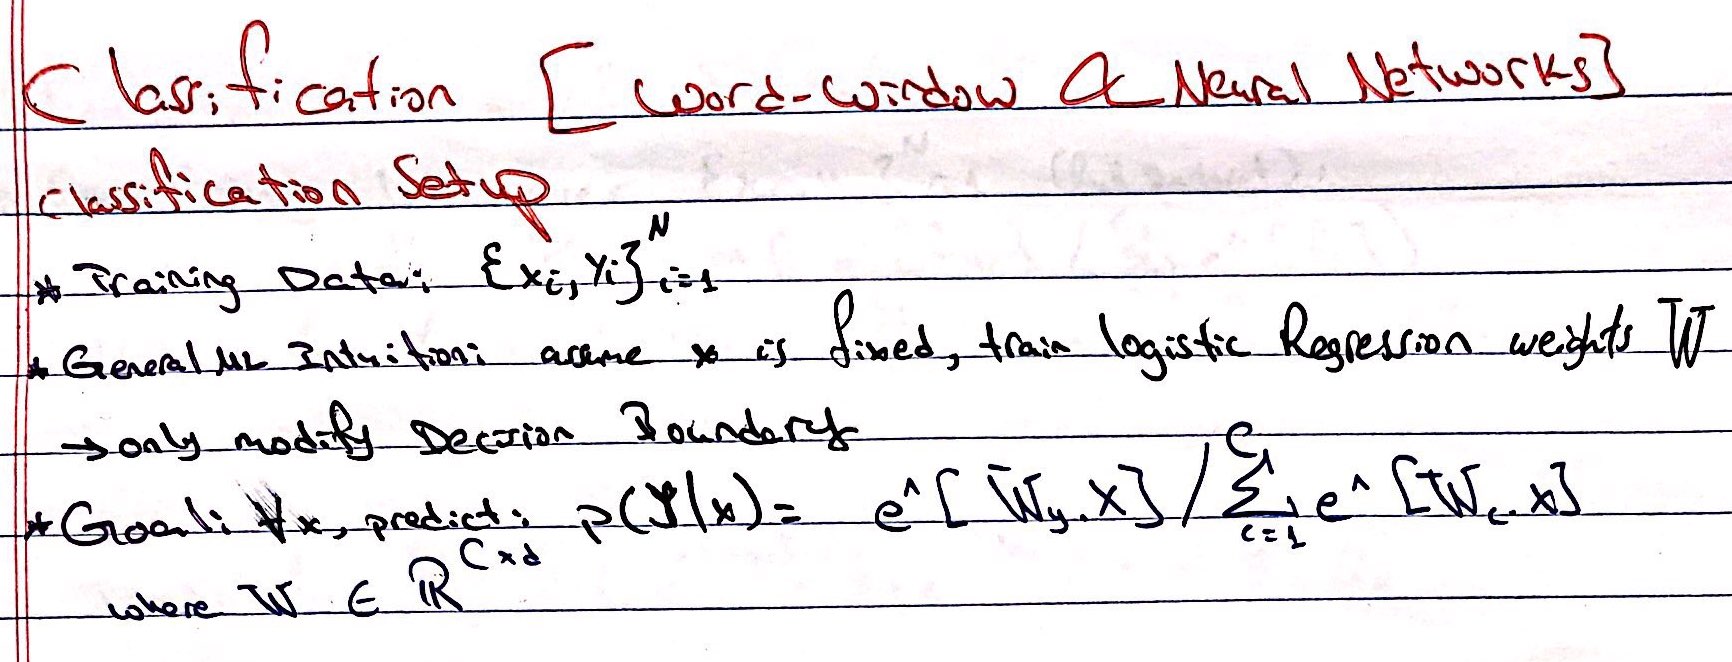 Classification [Word-Window & Neural Networks]
Classification Setup
* Training Data: {xi, yi}^N i=1
* General ML Intuition: assume x is fixed, train logistic Regression weights W
→ only modify Decision Boundary
* Goal: ∀x, predict: p(y|x) = e^[Wy.x] / Σ^C c=1 e^[Wc.x]
where W ∈ ℝ^C×d